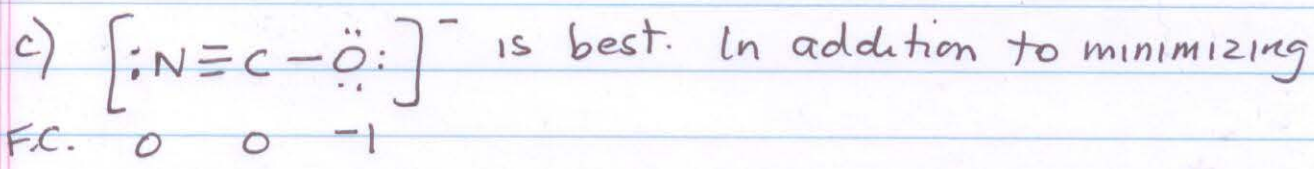 c) [:N≡C-Ö:]⁻ is best. In addition to minimizing
F.C. 0 0 -1